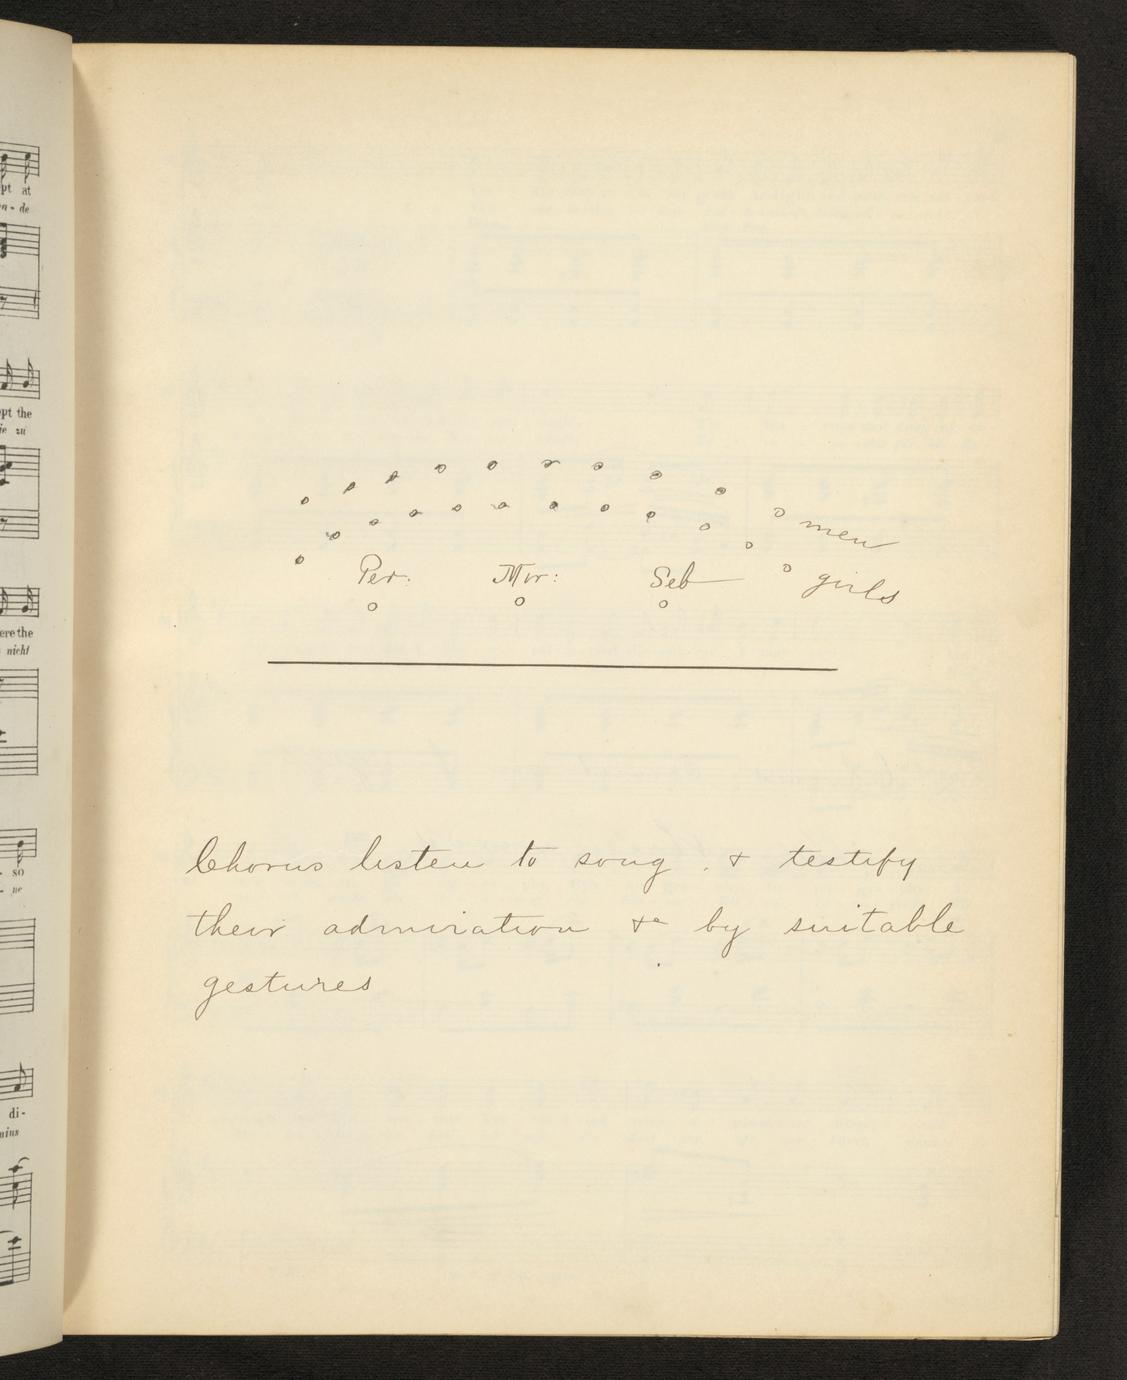 pt at
n - de
pt the
ie zu
ere the
nicht
- so
- ne
di -
nius
men
Per: Mir: Seb
girls
Chorus listen to song . & testify
their admiration &c by suitable
gestures